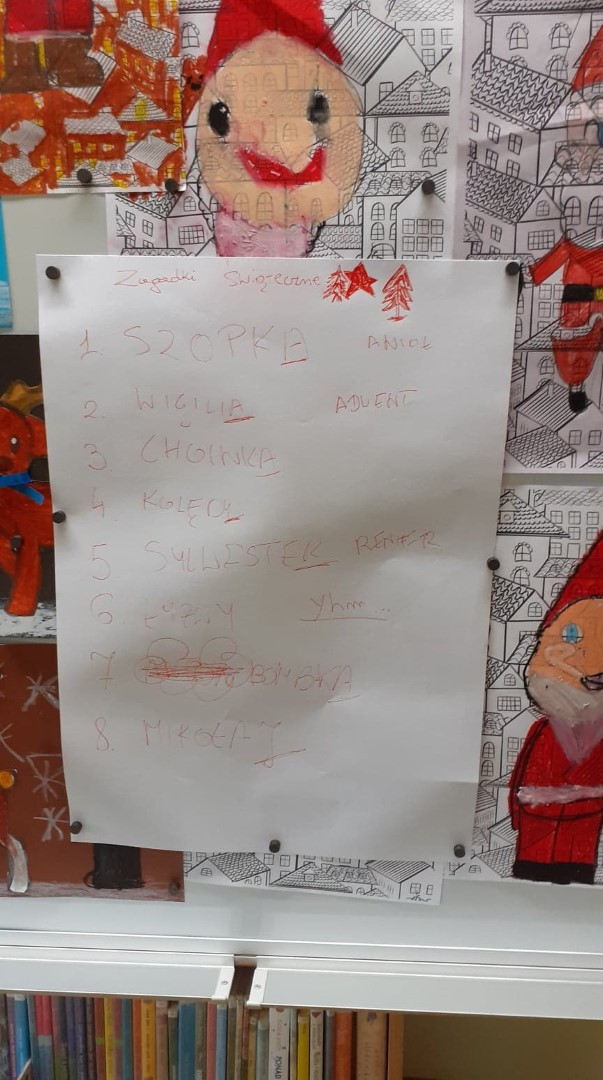 Zagadki Świąteczne
1. SZOPKA ANIOŁ
2. WIGILIA ADVENT
3. CHOINKA
4. KOLĘDY
5 SYLWESTER RENIFER
6. Yhm...
7 BOMBKA
8. MIKOŁAJ